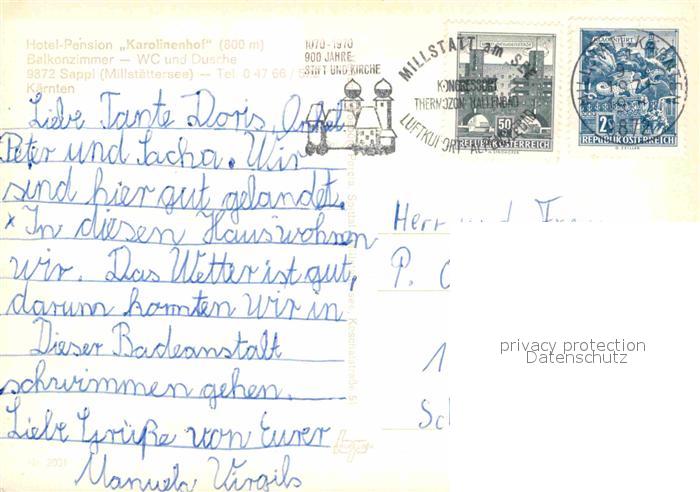 Hotel-Pension „Karolinenhof" (800 m)
Balkonzimmer — WC und Dusche
9872 Sappl (Millstättersee) — Tel. 0 47 66 /
Kärnten
1070-1970
900 JAHRE
STIFT UND KIRCHE
MILLSTATT am SEE
KONGRESSORT
THERMOZON HALLENBAD
LUFTKURORT
50
REPUBLIK ÖSTERREICH
2S
REPUBLIK ÖSTERREICH
9872
Liebe Tante Doris, Onkel
Peter und Sacha. Wir
sind hier gut gelandet.
x In diesen Haus wohnen
wir. Das Wetter ist gut,
darum konnten wir in
Dieser Badeanstalt
schwimmen gehen.
Liebe Grüße von Eurer
Manuela Virgils
Nr. 2031
Herr und Frau
P.
1
Sch
privacy protection
Datenschutz